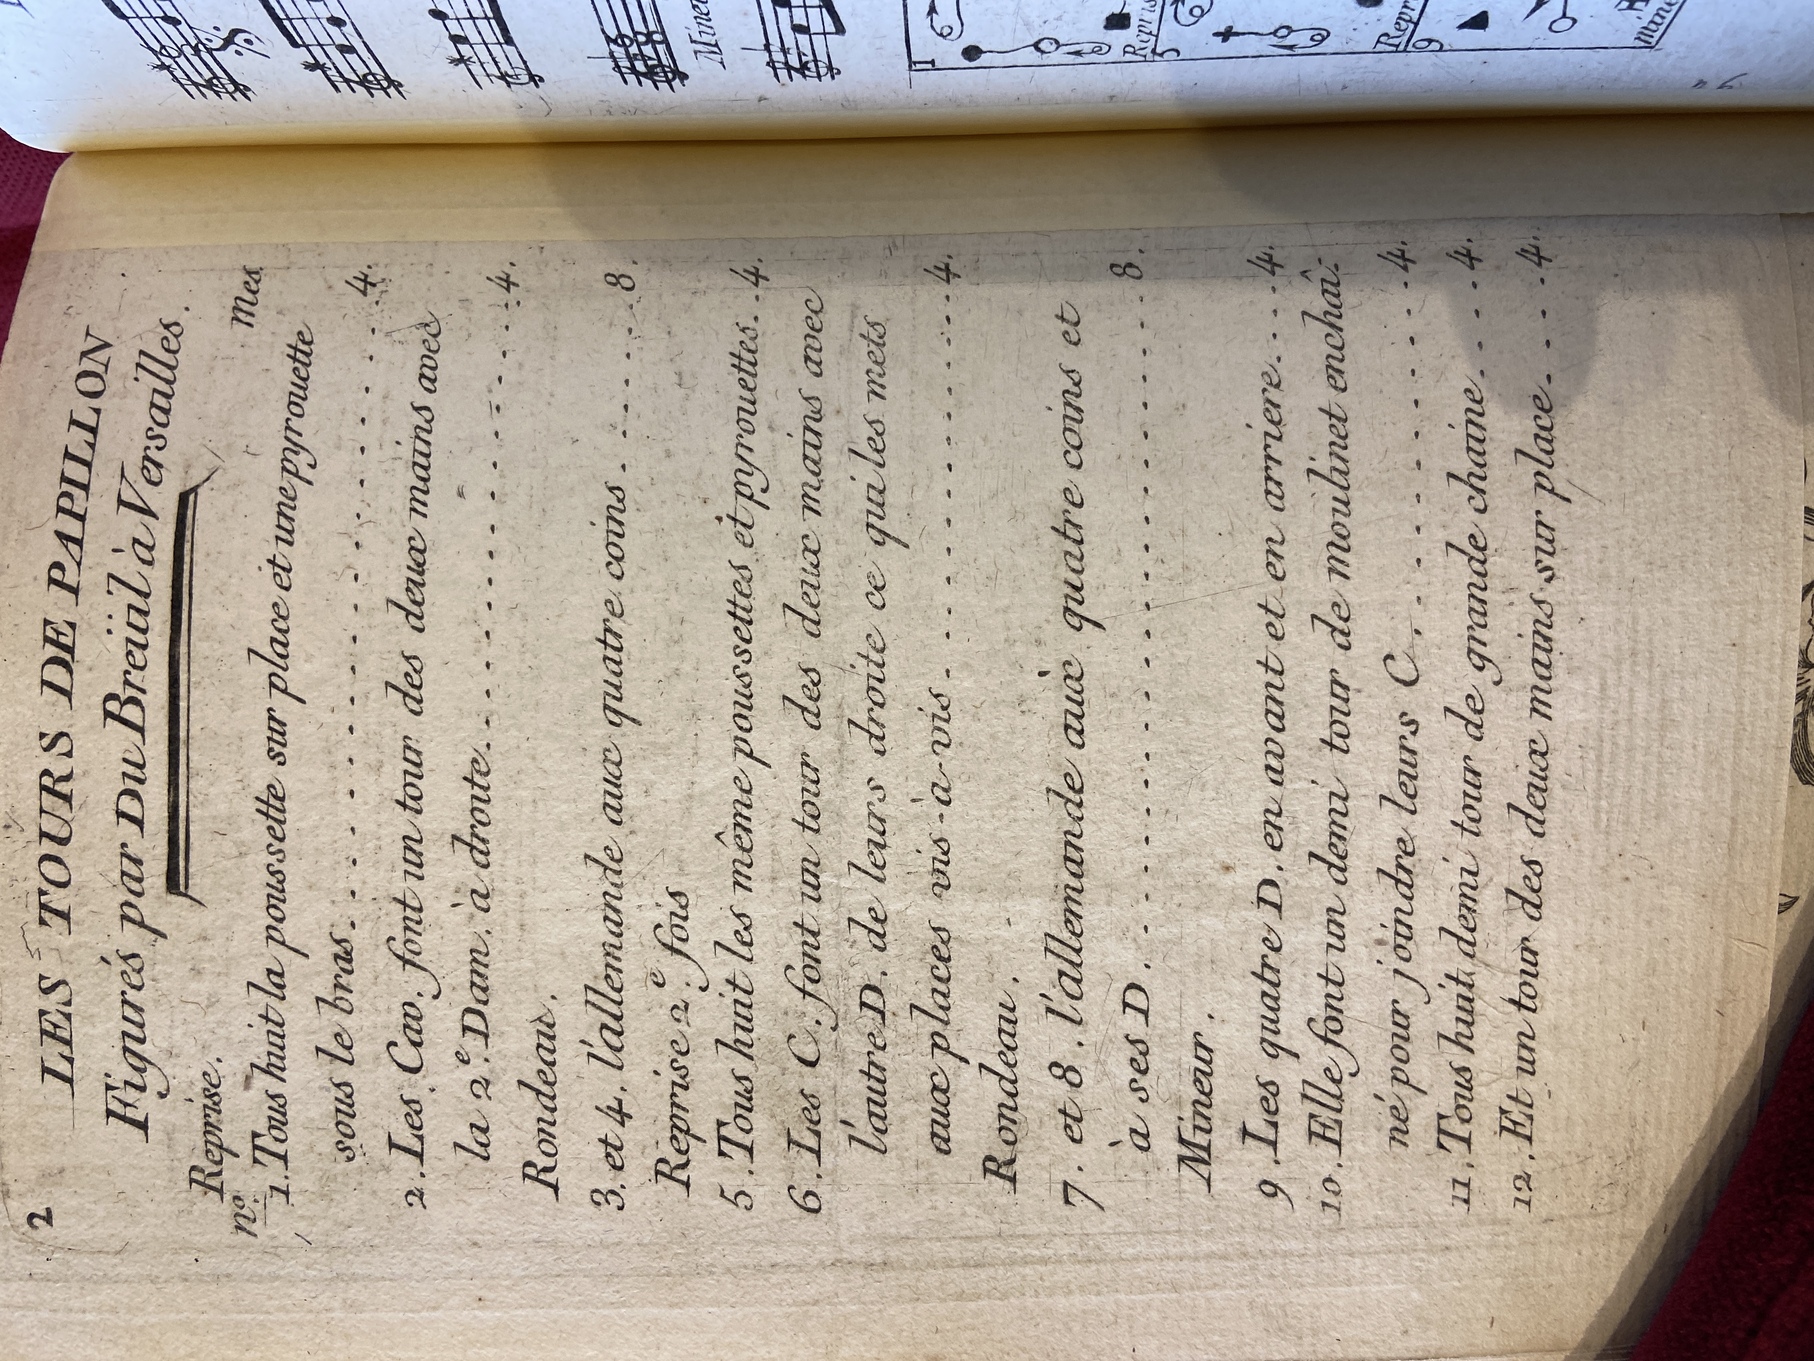 2
LES TOURS DE PAPILLON
Figurés par Du Breüil à Versailles.
Reprise.
nº. mes
1. Tous huit la poussette sur place et une pyrouette
sous le bras . . . . . . . . . . . . . . . 4.
2. Les Cav. font un tour des deux mains avec
la 2.e Dam. à droite . . . . . . . . . . . . . 4.
Rondeau.
3. et 4. l'allemande aux quatre coins . . . . . . 8.
Reprise 2.e fois
5. Tous huit les même poussettes et pyrouettes . . 4.
6. Les C. font un tour des deux mains avec
l'autre D. de leurs droite ce qui les mets
aux places vis-à-vis . . . . . . . . . . . . . . 4.
Rondeau.
7. et 8. l'allemande aux quatre coins et
à ses D. . . . . . . . . . . . . . . . . . . . . . 8.
Mineur.
9. Les quatre D. en avant et en arriere . . . . 4.
10. Elle font un demi tour de moulinet enchaî-
né pour joindre leurs C. . . . . . . . . . . . 4.
11. Tous huit demi tour de grande chaine . . . . 4.
12. Et un tour des deux mains sur place . . . . 4.
Mine
1
Repris
5
Repr
9
Mine